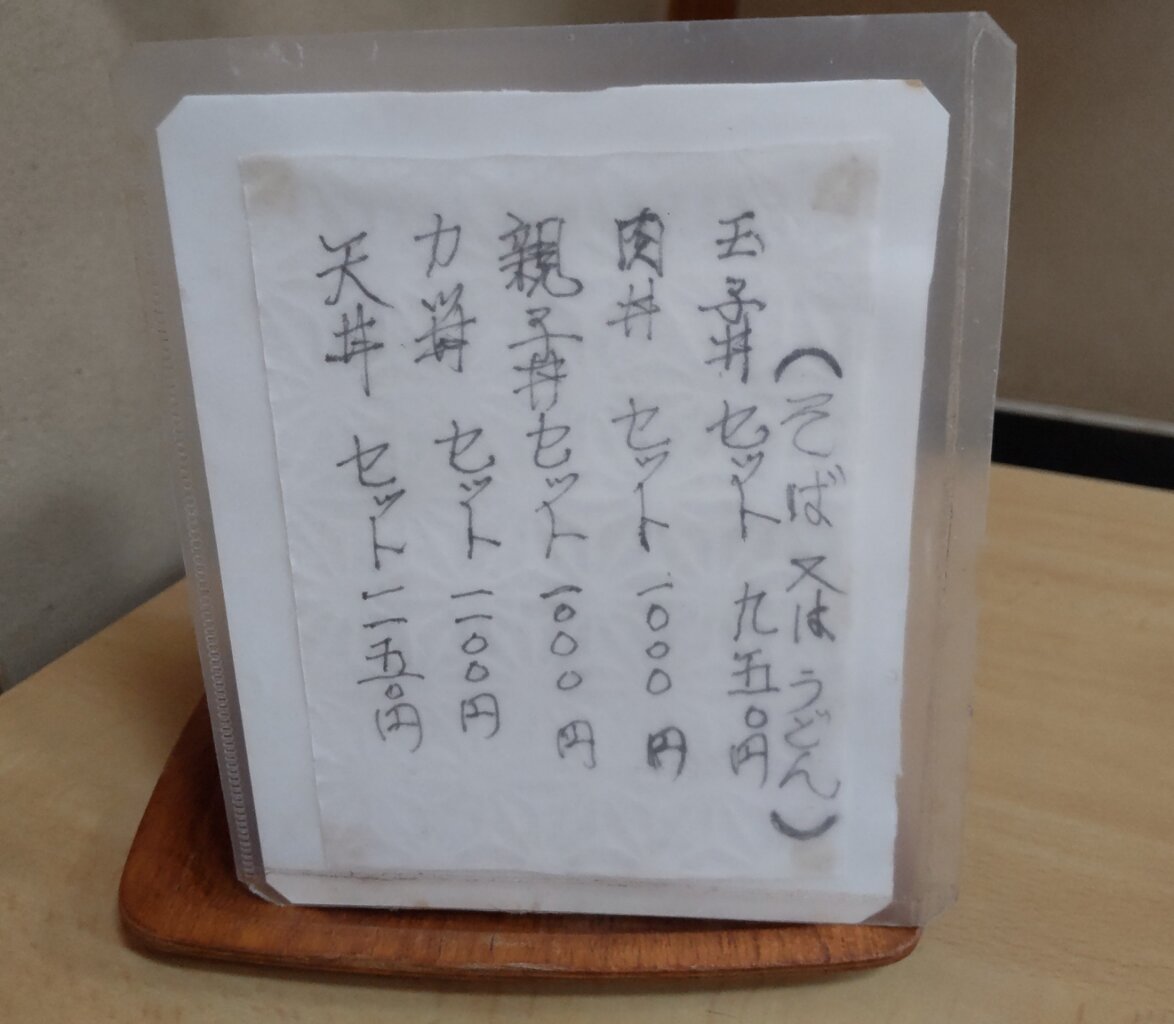 (そば又はうどん)
玉子丼セット 九五〇円
肉丼 セット 一〇〇〇円
親子丼セット 一〇〇〇円
カツ丼 セット 一一〇〇円
天丼 セット 一一五〇円